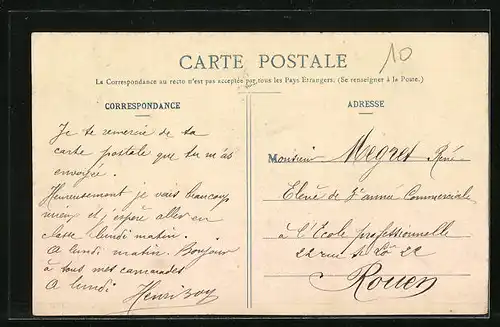 CARTE POSTALE
10
La Correspondance au recto n'est pas acceptée par tous les Pays Etrangers. (Se renseigner à la Poste.)
CORRESPONDANCE
Je te remercie de ta
carte postale que tu m'as
envoyée.
Heureusement je vais beaucoup
mieux et j'espère aller en
classe lundi matin.
A lundi matin. Bonjour
à tous mes camarades
A lundi
Henri
ADRESSE
Monsieur Megret René
Elève de 3e année Commerciale
à l'Ecole professionnelle
22 rue St Lô 22
Rouen